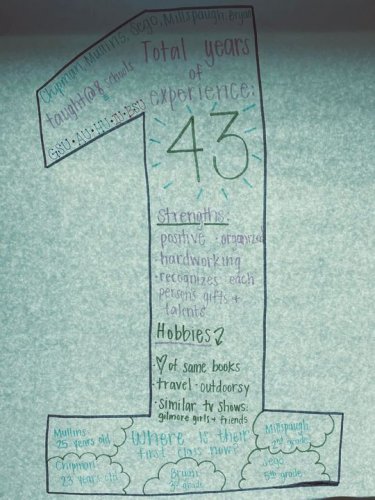 Chipman, Mullins, Sego, Millspaugh, Bryant
taught@8 schools
GSU • AU • UU • IU • BSU
Total years
of
experience:
43
Strengths:
• positive • organized
• hardworking
• recognizes each
person's gifts +
talents
Hobbies
• ♡ of same books
• travel • outdoorsy
• similar tv shows:
gilmore girls + friends
Mullins
25 years old
Chipman
23 years old
Where is their
first class now?
Bryant
3rd grade
Millspaugh
2nd grade
Sego
5th grade